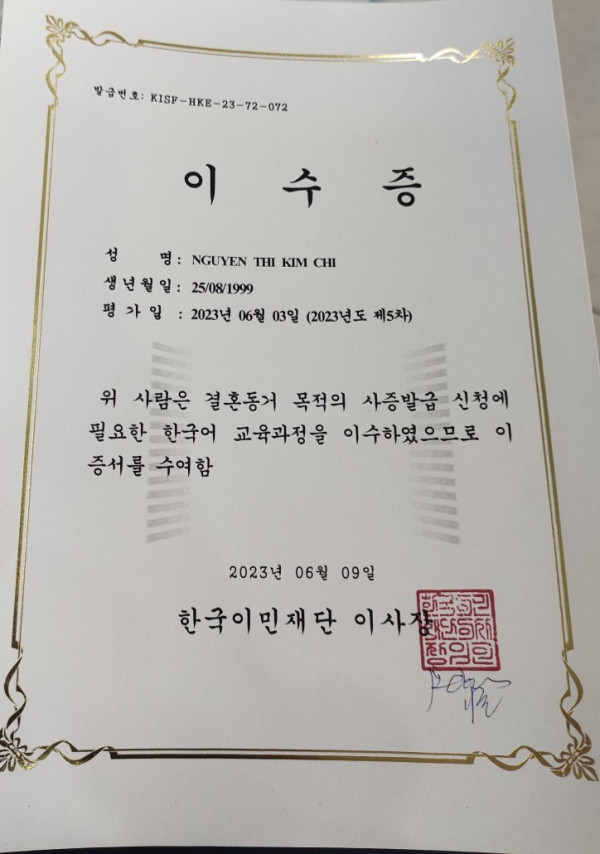 발급번호: KISF-HKE-23-72-072
이 수 증
성 명 : NGUYEN THI KIM CHI
생년월일 : 25/08/1999
평 가 일 : 2023년 06월 03일 (2023년도 제5차)
위 사람은 결혼동거 목적의 사증발급 신청에
필요한 한국어 교육과정을 이수하였으므로 이
증서를 수여함
2023년 06월 09일
한국이민재단 이사장